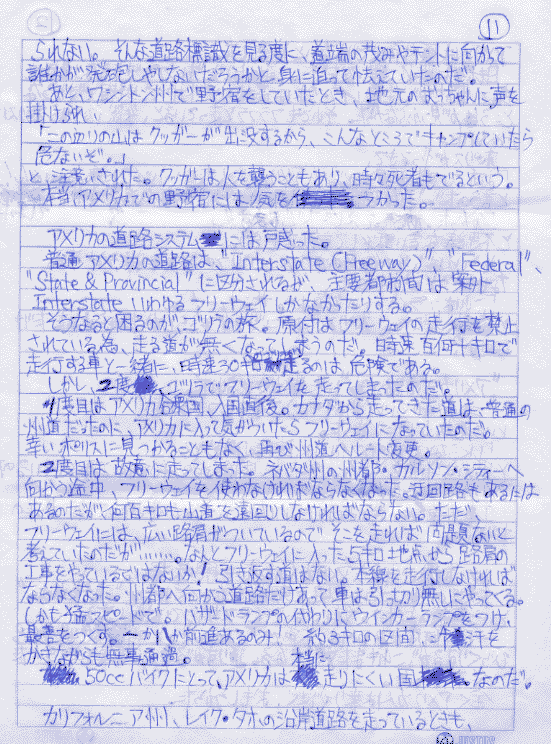 11
られない。そんな道路標識を見る度に、道端の茂みやテントに向かって
誰かが発砲しやしないだろうかと、身に迫って怯えていたのだ。
あと、ワシントン州で野宿をしていたとき、地元のおっちゃんに声を
掛けられ、
「この辺りの山はクッガーが出没するから、こんなところでキャンプしていたら
危ないぞ。」
と注意された。クッガーは人を襲うこともあり、時々死者もでるという。
本当にアメリカでの野宿には気をつかった。
アメリカの道路システムには戸惑った。
普通アメリカの道路は、"Interstate (Freeway)"、"Federal"、
"State & Provincial"に区分されるが、主要都市間は案外
Interstate いわゆるフリーウェイしかなかったりする。
そうなると困るのが、ゴリラの旅。原付はフリーウェイの走行を禁止
されている為、走る道が無くなってしまうのだ。時速百何十キロで
走行する車と一緒に、時速30キロで走るのは危険である。
しかし、2度、ゴリラでフリーウェイを走ってしまったのだ。
1度目はアメリカ合衆国、入国直後。カナダから走ってきた道は、普通の
州道だったのに、アメリカに入って気がついたらフリーウェイになっていたのだ。
幸いポリスに見つかることもなく、再び州道へルート変更。
2度目は故意に走ってしまった。ネバダ州の州都・カルソン・シティーへ
向かう途中、フリーウェイを使わなければならなくなった。迂回路もあるには
あるのだが、何百キロも山道を遠回りしなければならない。ただ、
フリーウェイには、広い路肩がついているので そこを走れば問題ないと
考えていたのだが………。なんとフリーウェイに入った5キロ地点から路肩の
工事をやっているではないか！ 引き返す道はない。本線を走行しなければ
ならなくなった。州都へ向かう道路だけあって車は引っ切り無しにやってくる。
しかも猛スピードで。ハザードランプの代わりにウインカーランプをつけ、
最善をつくす。一か八か前進あるのみ！ 約3キロの区間、冷汗を
かきながらも無事通過。
50ccバイクにとって、アメリカは本当に走りにくい国なのだ。
カリフォルニア州、レイク・タホの沿岸道路を走っているときも、